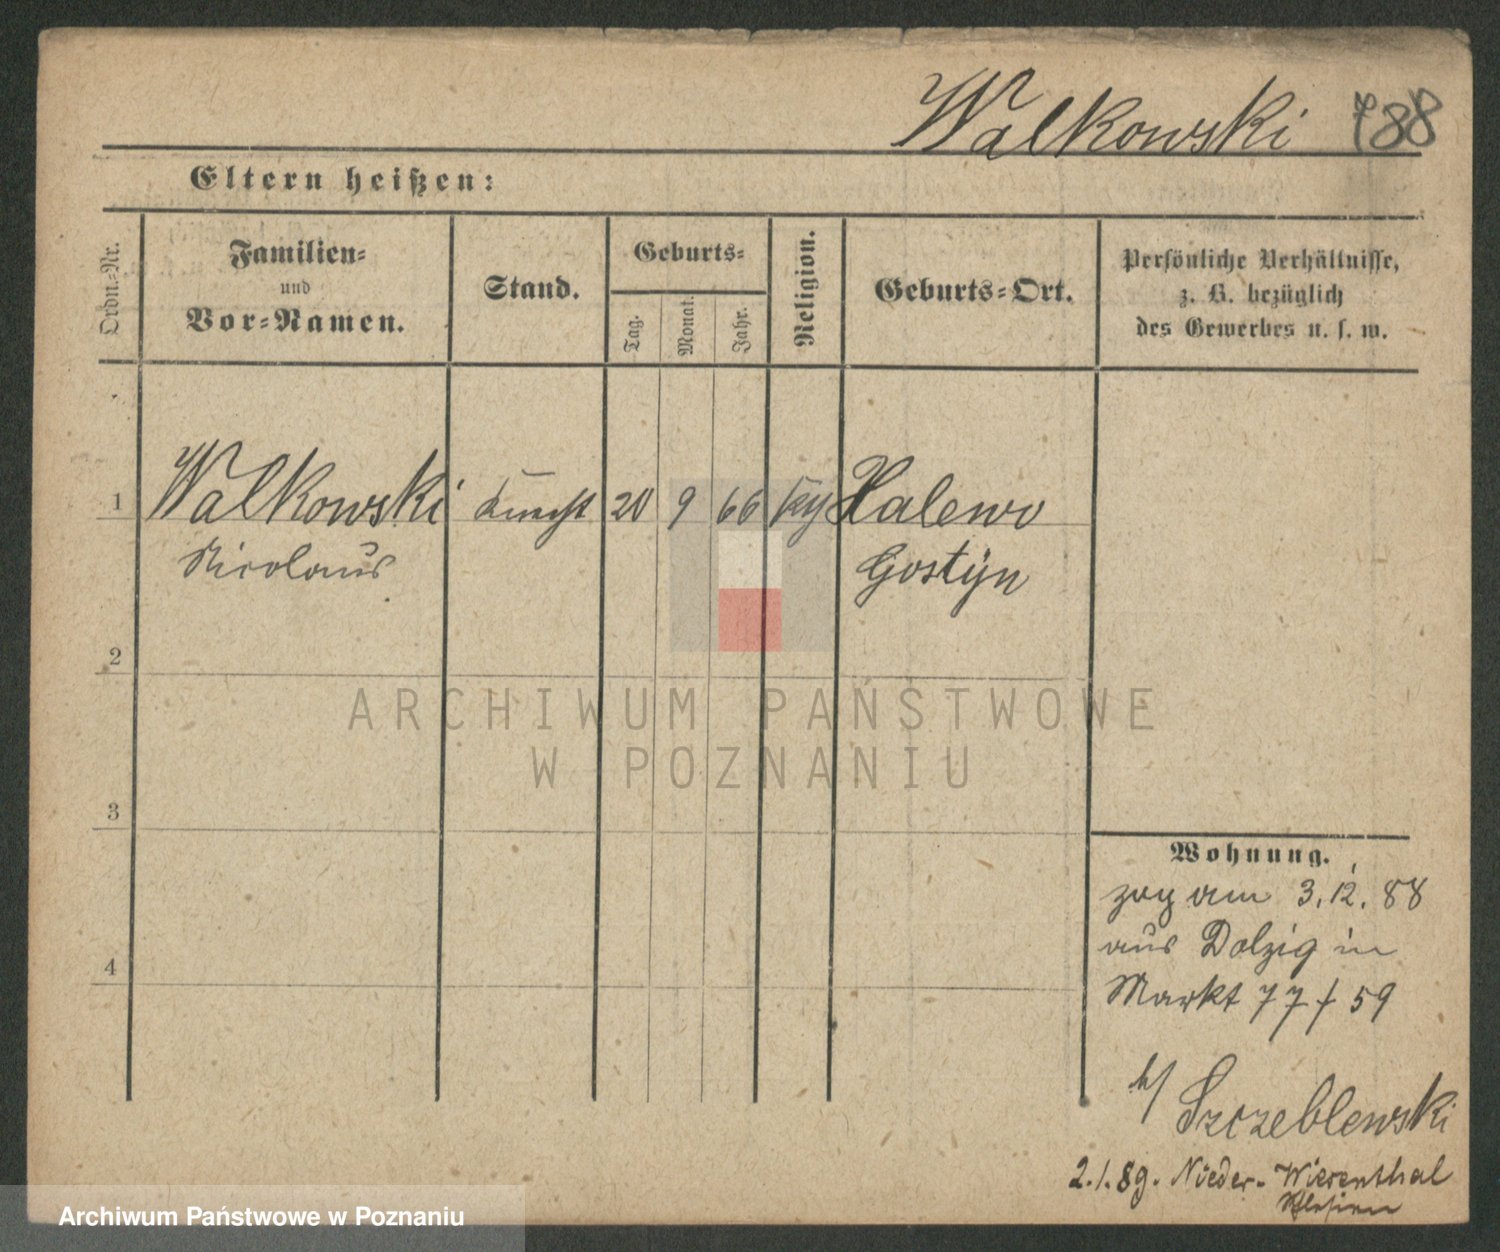 Walkowski 788
Eltern heißen:
Ordn.-Nr.
Familien-
und
Vor-Namen.
Stand.
Geburts-
Tag.
Monat.
Jahr.
Religion.
Geburts-Ort.
Persönliche Verhältnisse,
z. B. bezüglich
des Gewerbes u. s. w.
1 Walkowski Knecht 20 9 66 Halewo
Nicolaus Gostÿn
2
3
4
Wohnung.
zog am 3.12.88
aus Dolzig in
Markt 77/59
b/ Szczeblewski
2.1.89. Nieder-Wiesenthal
Schlesien
ARCHIWUM PAŃSTWOWE
W POZNANIU
Archiwum Państwowe w Poznaniu